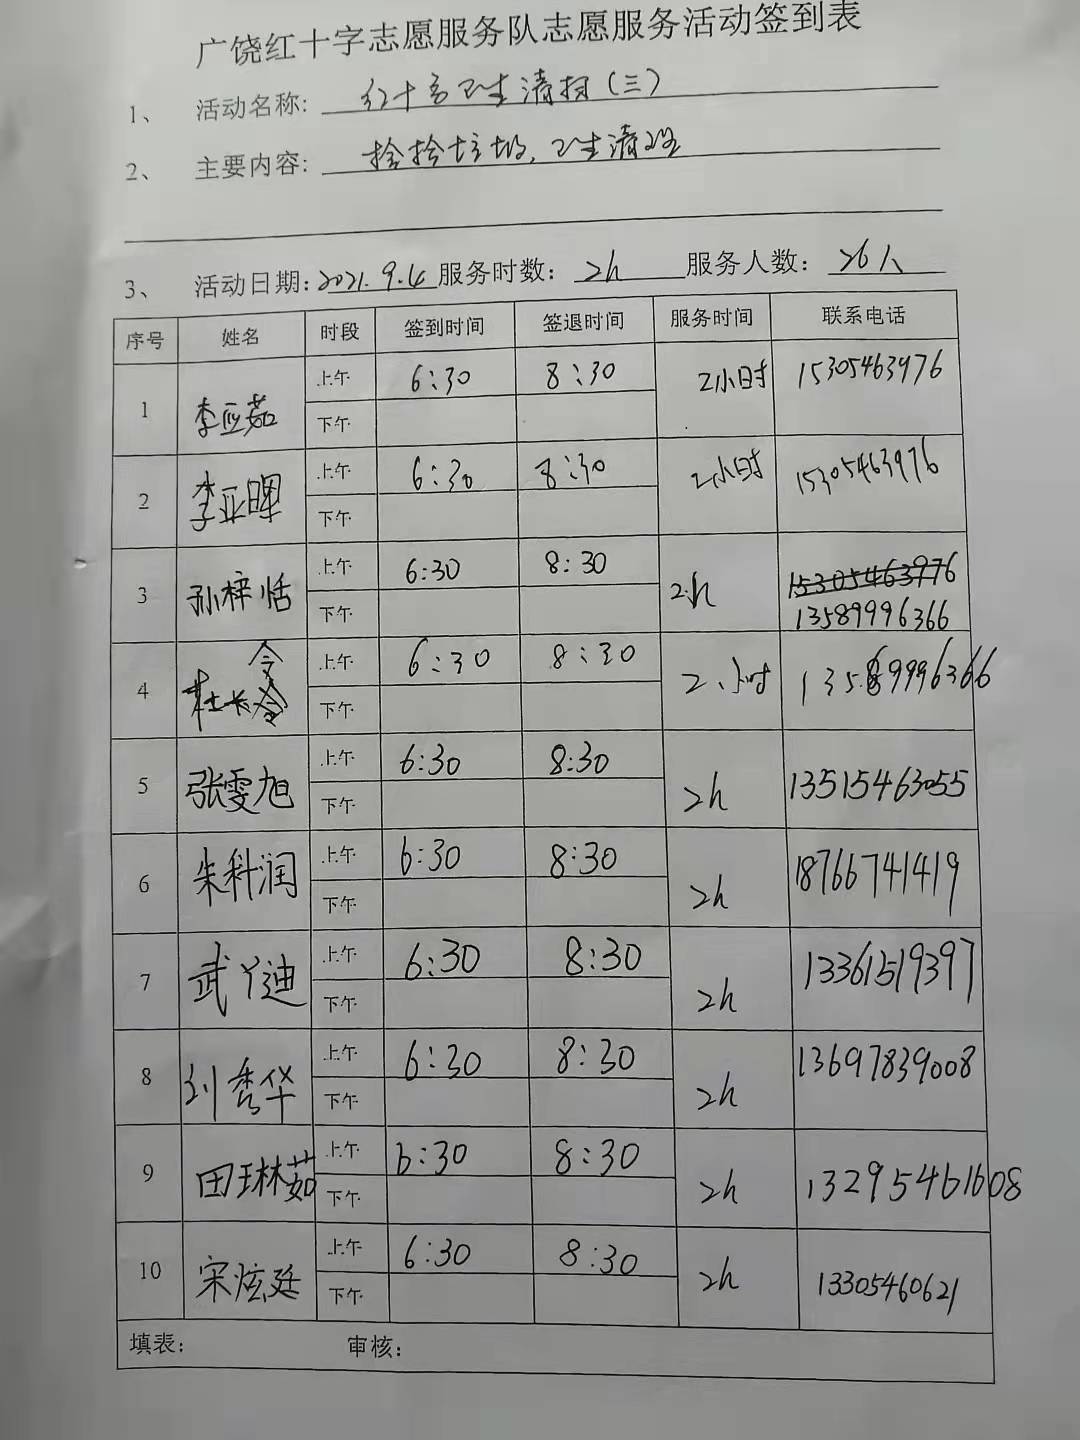 广饶红十字志愿服务队志愿服务活动签到表
1、 活动名称: 红十字卫生清扫(三)
2、 主要内容: 捡拾垃圾,卫生清理
3、 活动日期: 2021.9.4 服务时数: 2h 服务人数: 26人
序号 姓名 时段 签到时间 签退时间 服务时间 联系电话
1 李应茹 上午 6:30 8:30 2小时 15305463976
下午
2 李亚晖 上午 6:30 8:30 2小时 15305463976
下午
3 孙梓恬 上午 6:30 8:30 2h 15305463976
下午 13589996366
4 杜长令 上午 6:30 8:30 2小时 13589996366
下午
5 张雯旭 上午 6:30 8:30 2h 13515463055
下午
6 朱科润 上午 6:30 8:30 2h 18766741419
下午
7 武丫迪 上午 6:30 8:30 2h 13361519397
下午
8 刘秀华 上午 6:30 8:30 2h 13697839008
下午
9 田琳茹 上午 6:30 8:30 2h 13295461608
下午
10 宋炫廷 上午 6:30 8:30 2h 13305460621
下午
填表: 审核: